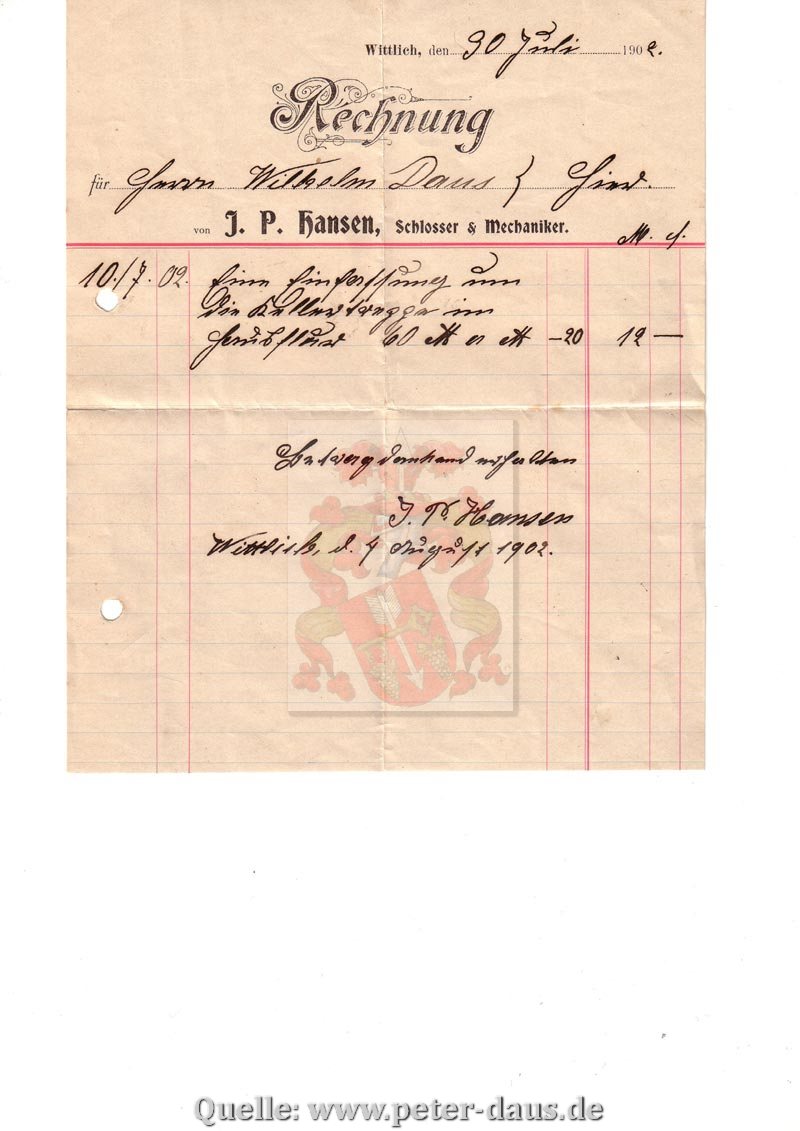 Wittlich, den 30 Juli 1902.
Rechnung
für Herrn Wilhelm Daus Hier.
von J. P. Hansen, Schlosser & Mechaniker.
M. ₰.
10./7. 02. Eine Einfassung um
die Kellertreppe im
Hausflur 60 M a M -20 12 —
Betrag dankend erhalten
J. P. Hansen
Wittlich, d. 4 August 1902.
Quelle: www.peter-daus.de